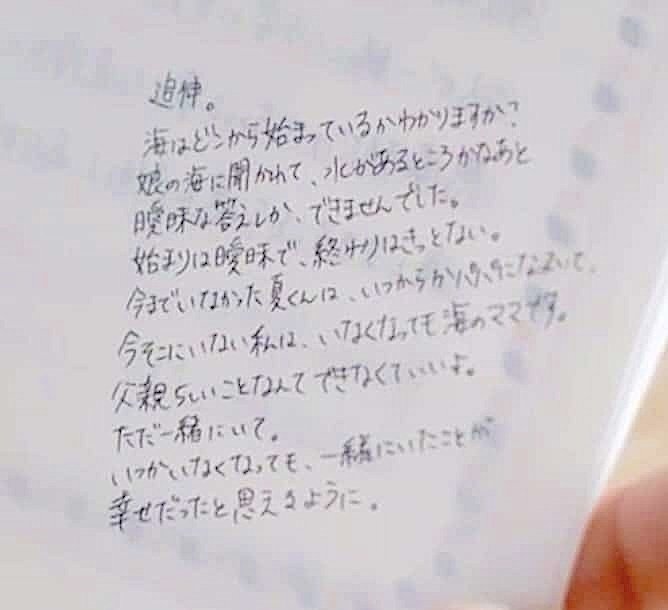 追伸。
海はどこから始まっているかわかりますか？
娘の海に聞かれて、水があるところかなあと
曖昧な答えしか、できませんでした。
始まりは曖昧で、終わりはきっとない。
今までいなかった夏くんは、いつからかパパになっていて、
今そこにいない私は、いなくなっても海のママです。
父親らしいことなんてできなくていいよ。
ただ一緒にいて。
いつかいなくなっても、一緒にいたことが
幸せだったと思えるように。